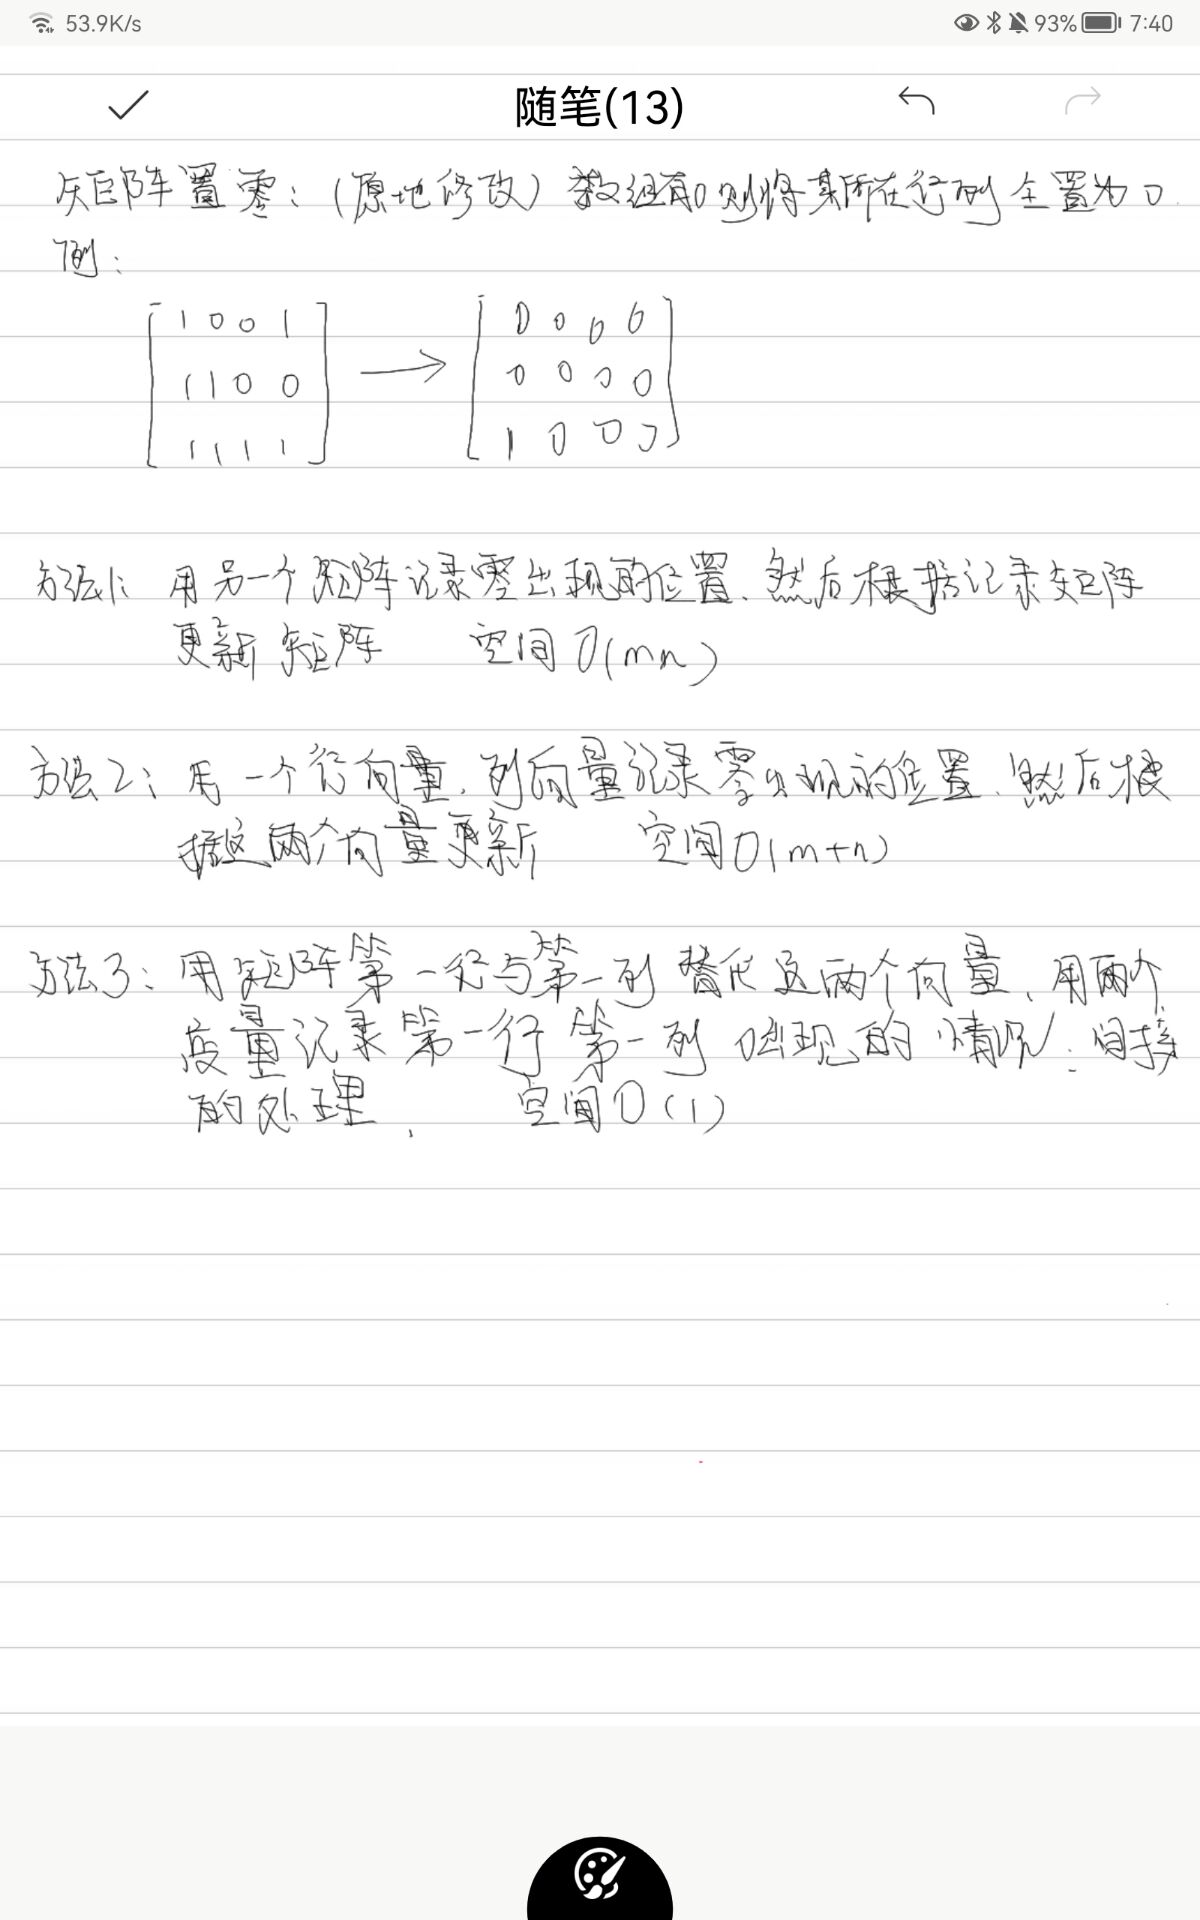 53.9K/s 93% 7:40
随笔(13)
矩阵置零:(原地修改)数组有0则将其所在行列全置为0.
例:
1 0 0 1 → 0 0 0 0
1 1 0 0 0 0 0 0
1 1 1 1 1 0 0 0
方法1: 用另一个矩阵记录零出现的位置.然后根据记录矩阵
更新矩阵 空间O(mn)
方法2: 用一个行向量.列向量记录零出现的位置.然后根
据这两个向量更新 空间O(m+n)
方法3: 用矩阵第一行与第一列替代这两个向量、用两个
变量记录第一行第一列0出现的情况.间接
的处理. 空间O(1)